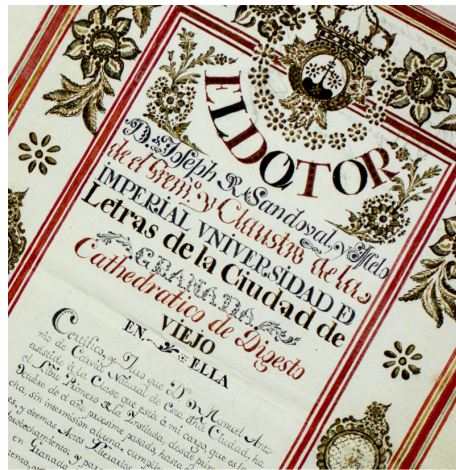 EL DOTOR
D. Joseph R. Sandoval, y Melo
de el Grem.º y Claustro de la
IMPERIAL VNIVERSIDAD D
Letras de la Ciudad de
GRANADA
Cathedratico de Digesto
VIEJO
EN ELLA
Certifico, y Juro que D. Manuel Anto
nio de Natural de esta Ciudad, ha
asistido à la Clase que està à mi cargo, que es la
el Libro Primero de la Instituta, desde
Octubre de el año proxime pasado, hasta
cha, sin intermision alguna, cumpliendo
es, y demas Actos Literarios
en Granada